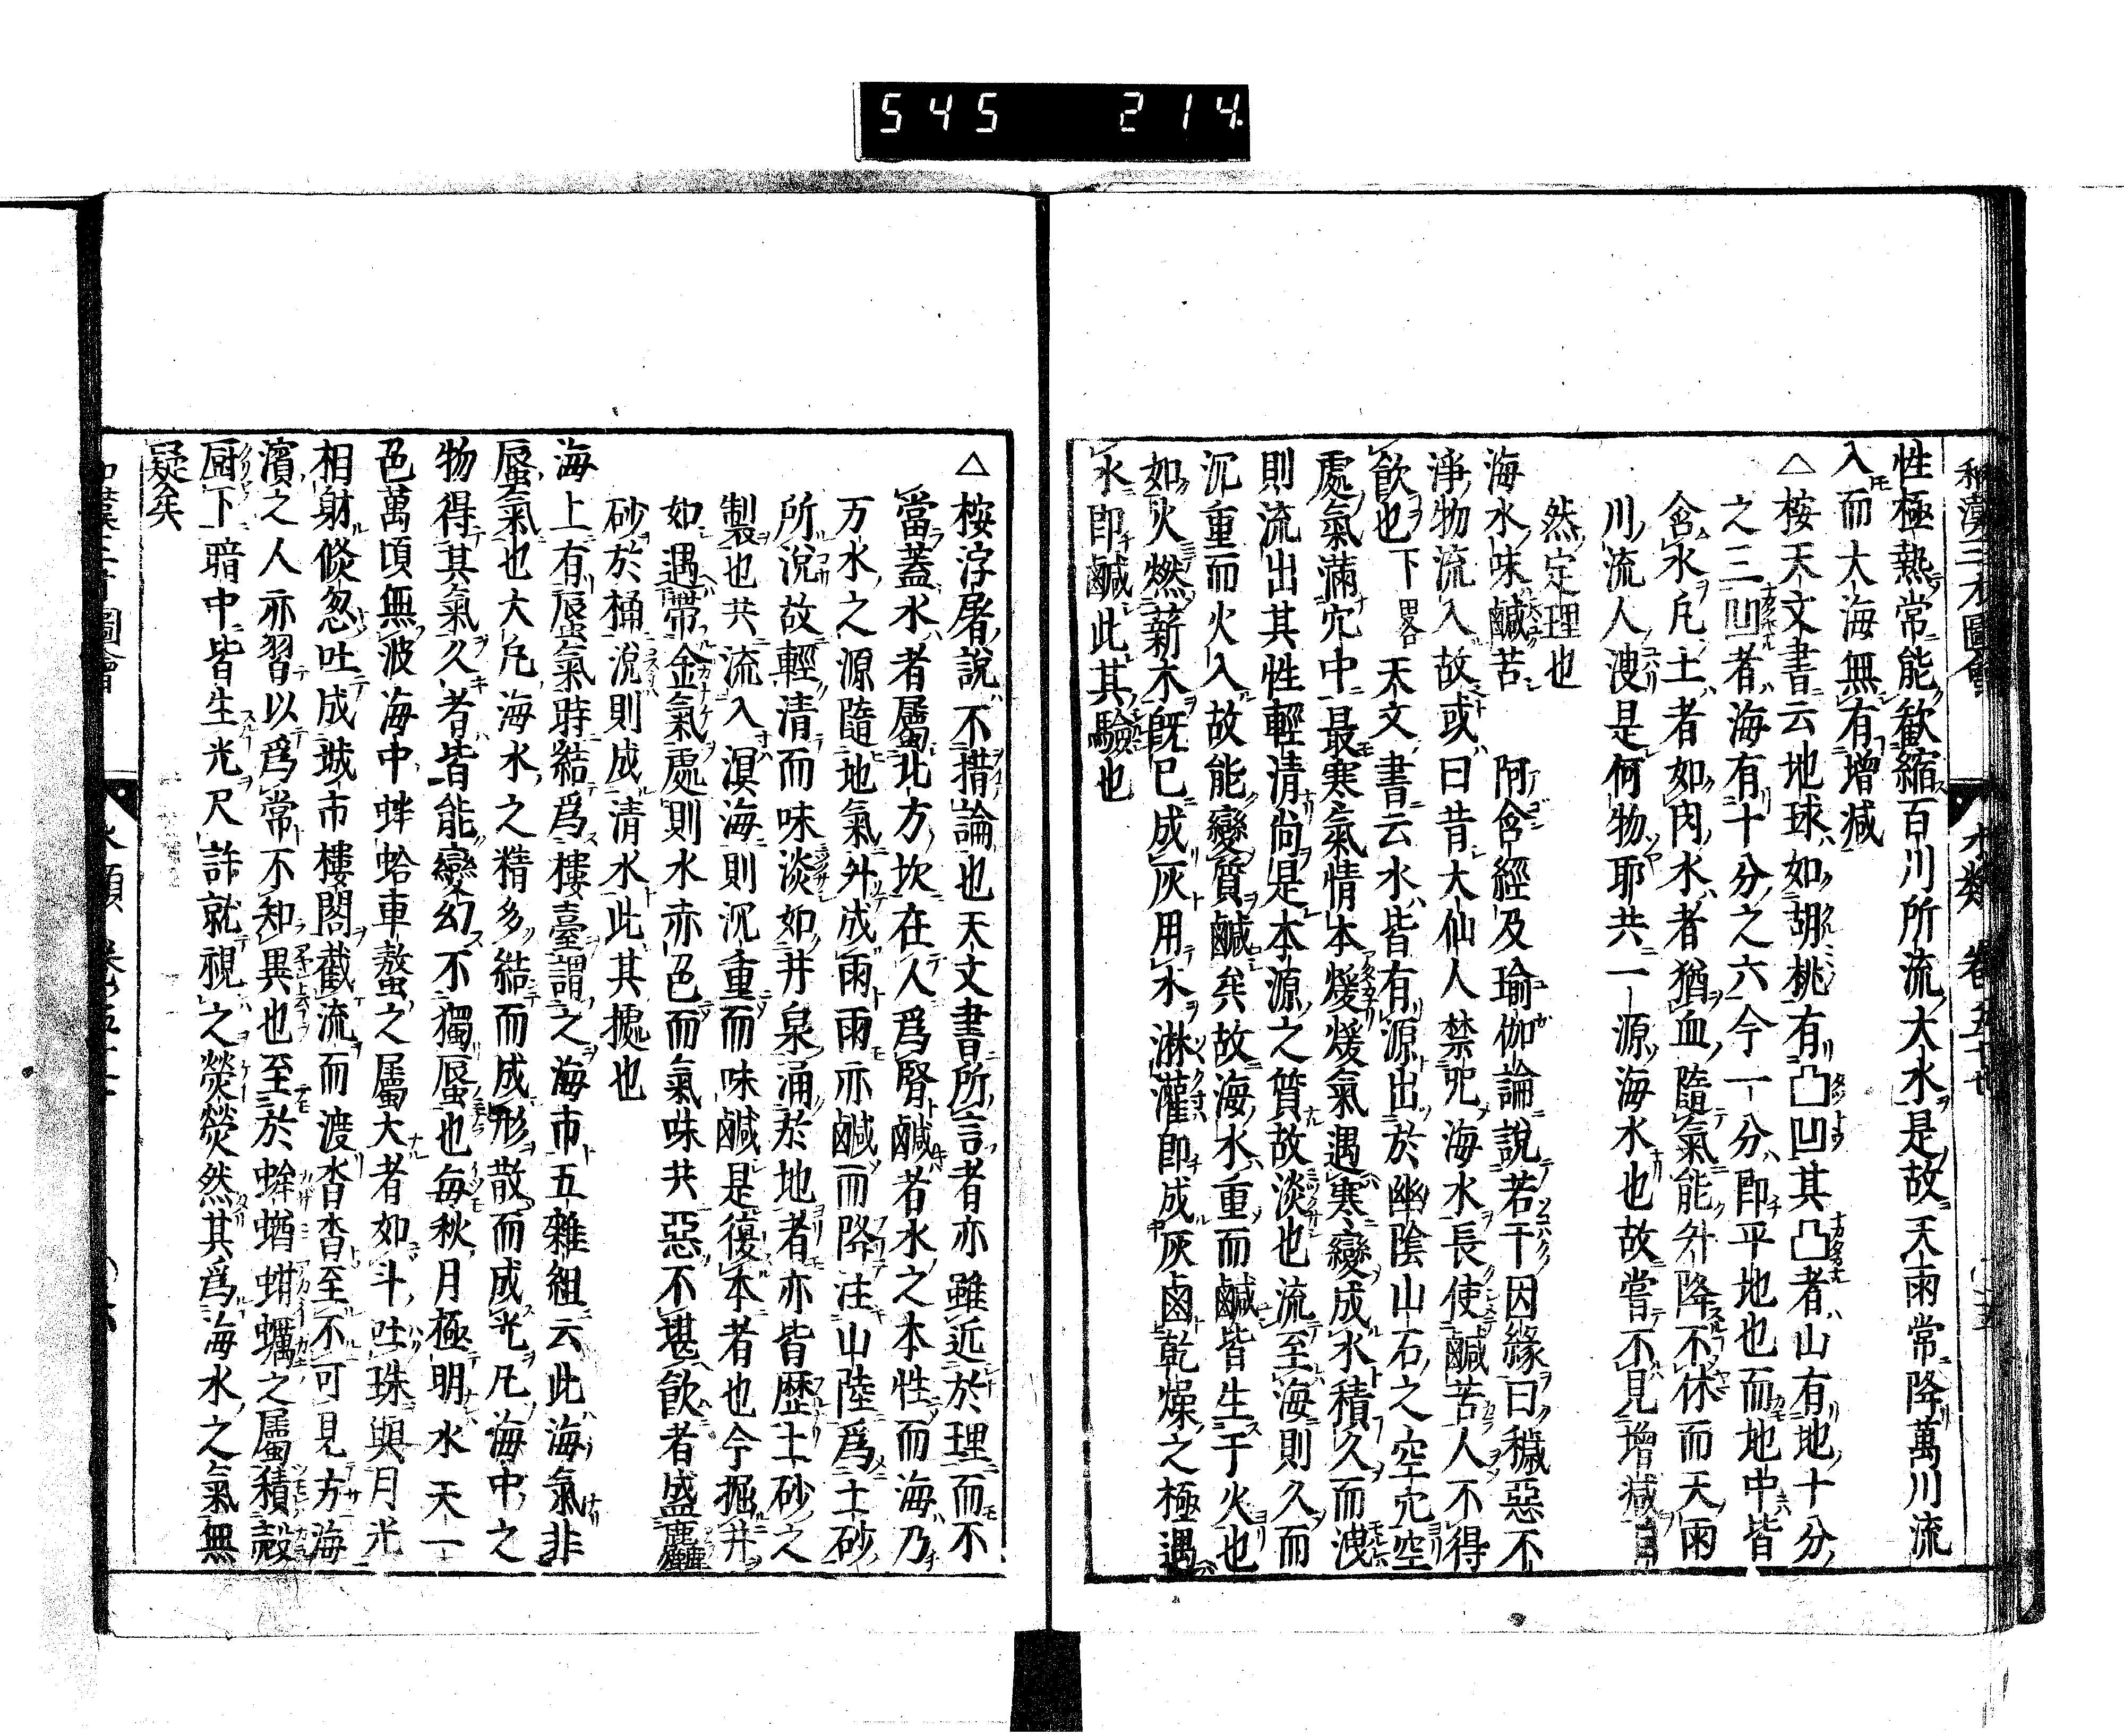 545 214
和漢三才圖會 水類 卷五十七
性極熱常能歙縮百川所流大水是故天雨常降萬川流
入而大海無有增減
△桉天文書云地球如胡桃有凸凹其凸者山有地十分
之三凹者海有十分之六今一分卽平地也而地中皆
含水凡土者如肉水者猶血隨氣能升降不休而天雨
川流人溲是何物耶共一源海水也故嘗不見增減自
然定理也
海水味鹹苦 阿含經及瑜伽論說若干因緣曰穢惡不
淨物流入故或曰昔大仙人禁咒海水長使鹹苦人不得
飮也下畧 天文書云水皆有源出於幽陰山石之空穴空
處氣滿穴中最寒氣情本煖煖氣遇寒變成水積久而洩
則流出其性輕清尚是本源之質故淡也流至海則久而
沉重而火入故能變質鹹矣故海水重而鹹皆生于火也
如火燃薪木旣已成灰用水淋灌卽成灰鹵乾燥之極遇
水卽鹹此其驗也
△桉浮屠說不措論也天文書所言者亦雖近於理而不
當蓋水者屬北方坎在人爲腎鹹者水之本性而海乃
万水之源隨地氣升成雨雨亦鹹而降注山陸爲土砂
所漉故輕清而味淡如井泉涌於地者亦皆歷土砂之
製也共流入溟海則沉重而味鹹是復本者也今掘井
如遇帶金氣處則水赤色而氣味共惡不堪飮者盛麤
砂於桶漉則成清水此其據也
海上有蜃氣時結爲樓臺謂之海市五雜組云此海氣非
蜃氣也大凡海水之精多結而成形散而成光凡海中之
物得其氣久者皆能變幻不獨蜃也每秋月極明水天一
色萬頃無波海中蚌蛤車螯之屬大者如斗吐珠與月光
相射倐忽吐成城市樓閣截流而渡杳杳至不可見方海
濱之人亦習以爲常不知異也至於蛑蝤蚶蠣之屬積殼
厨下暗中皆生光尺許就視之熒熒然其爲海水之氣無
疑矣